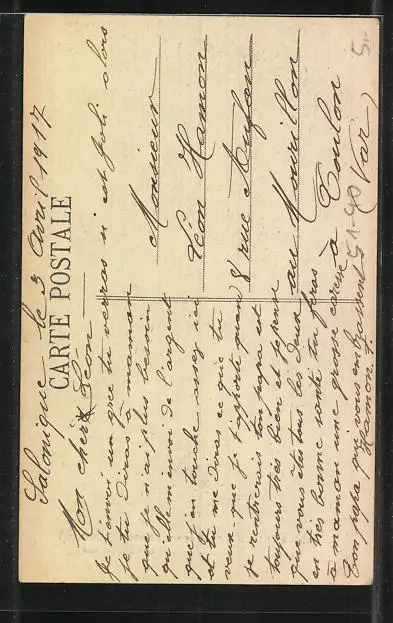 Salonique le 3 Avril 1917
CARTE POSTALE
Mon cher Léon
Je t'envoi un grec tu verras si est joli alors
je tu diras à maman
que je n'ai plus besoin
qu'elle m'envoi de l'argent
que j'en touche assez ici
et tu me diras ce que tu
veux que je t'apporte quand
je rentrerais ton papa est
toujours très bien et pense
que vous êtes tous les deux
en très bonne santé tu feras
à maman une grosse caresse
ton papa qui vous embrassent
Hamon. F
Monsieur
Léon Hamon
8 rue Bufon
au Mourillon
à Toulon
(Var)
51-40
5.-